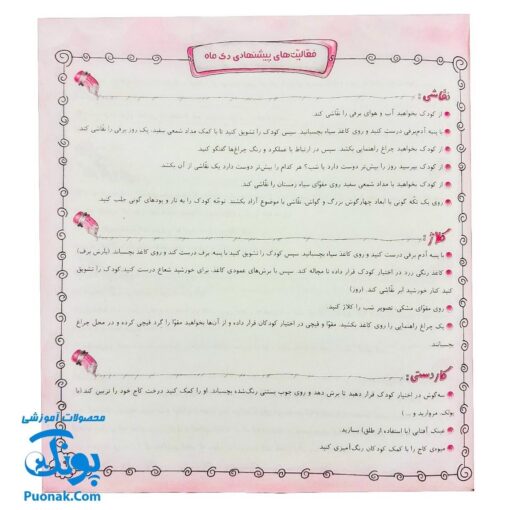 فعالیت‌های پیشنهادی دی ماه
نقاشی:
از کودک بخواهید آب و هوای برفی را نقاشی کند.
با پنبه آدم برفی درست کنید و روی کاغذ سیاه بچسبانید. سپس کودک را تشویق کنید تا با کمک مداد شمعی سفید، یک روز برفی را نقاشی کند.
از کودک بخواهید چراغ راهنمایی بکشد. سپس در ارتباط با عملکرد و رنگ چراغ‌ها گفتگو کنید.
از کودک بپرسید روز را بیش‌تر دوست دارد یا شب؟ هر کدام را بیش‌تر دوست دارد یک نقاشی از آن بکشد.
از کودک بخواهید با مداد شمعی سفید روی مقوّای سیاه زمستان را نقاشی کند.
روی یک تکّه گونی با ابعاد چهارگوش بزرگ و گواش نقاشی با موضوع آزاد بکشند. توجّه کودک را به تار و پودهای گونی جلب کنید.
کلاژ:
با پنبه آدم برفی درست کنید و روی کاغذ سیاه بچسبانید. سپس کودک را تشویق کنید با پنبه برف درست کند و روی کاغذ بچسباند. (بارش برف)
کاغذ رنگی زرد در اختیار کودک قرار داده تا مچاله کند. سپس با برش‌های عمودی کاغذ، برای خورشید شعاع درست کنید. کودک را تشویق
کنید کنار خورشید ابر نقاشی کند. (روز)
روی مقوّای مشکی، تصویر شب را کلاژ کنید.
یک چراغ راهنمایی را روی کاغذ بکشید. مقوّا و قیچی در اختیار کودکان قرار داده و از آن‌ها بخواهید مقوّا را گرد قیچی کرده و در محل چراغ
بچسبانند.
کاردستی:
سه‌گوش در اختیار کودک قرار دهید تا برش دهد و روی چوب بستنی رنگ‌شده بچسباند. او را کمک کنید درخت کاج خود را تزیین کند (با
پولک، مروارید و ...)
عینک آفتابی (با استفاده از طلق) بسازید.
میوه‌ی کاج را با کمک کودکان رنگ‌آمیزی کنید.
محصولات آموزشی
پونک
Puonak.Com